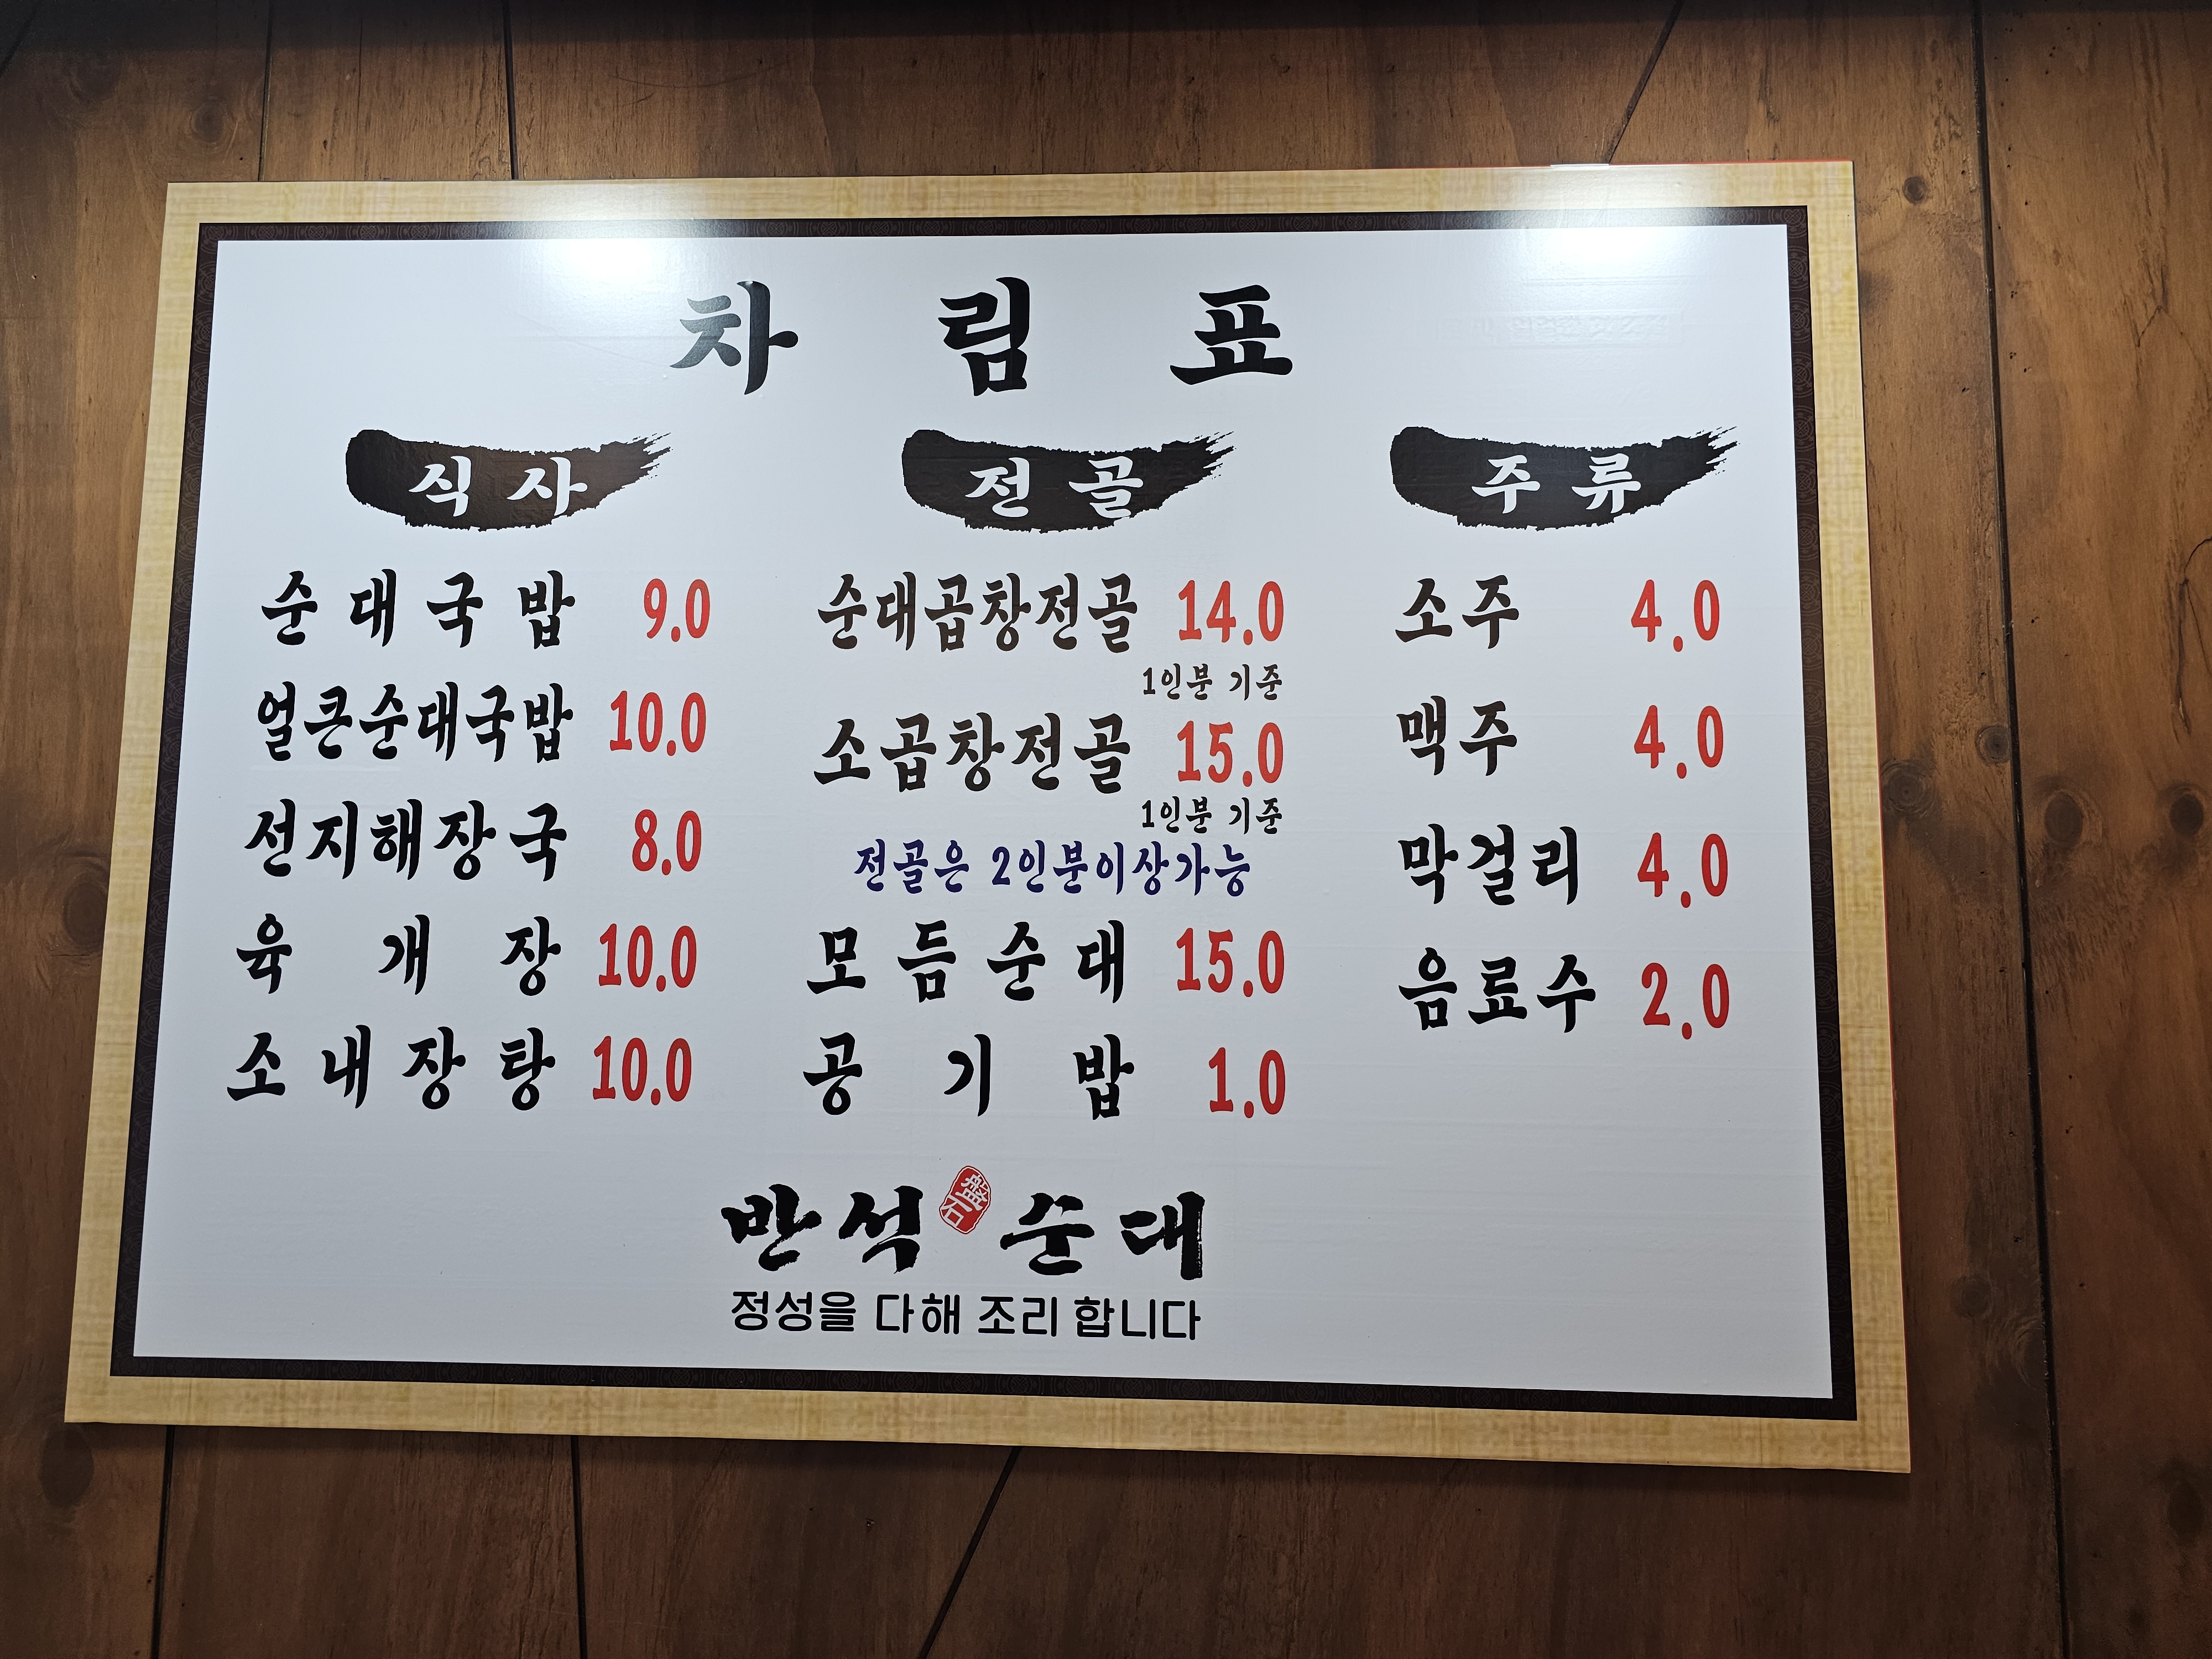 차 림 표
식 사
순 대 국 밥 9.0
얼큰순대국밥 10.0
선지해장국 8.0
육 개 장 10.0
소 내 장 탕 10.0
전 골
순대곱창전골 14.0
1인분 기준
소곱창전골 15.0
1인분 기준
전골은 2인분이상가능
모 듬 순 대 15.0
공 기 밥 1.0
주 류
소주 4.0
맥주 4.0
막걸리 4.0
음료수 2.0
반석 盤石 순대
정성을 다해 조리 합니다